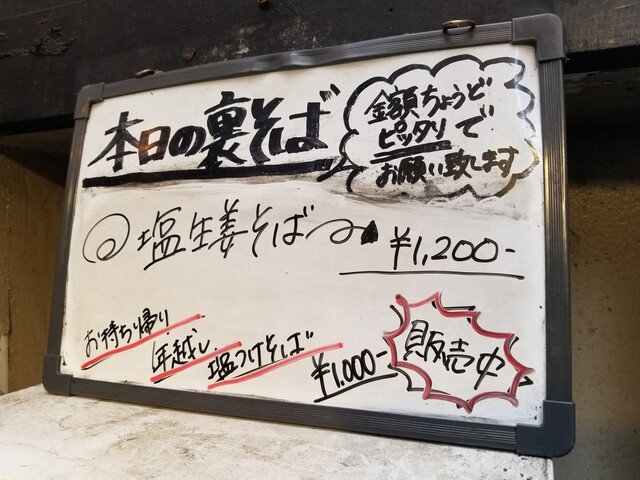 本日の裏そば
金額ちょうど
ピッタリで
お願い致します
塩生姜そば
¥1,200-
お持ち帰り
年越し
塩つけそば
¥1,000-
販売中